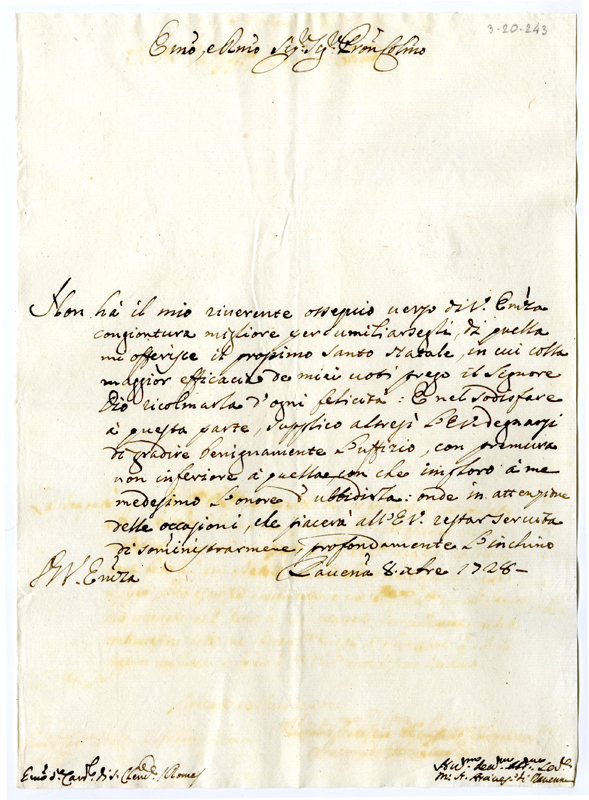 3-20-243
Emo, e Rmo Sig.r Sig.r Pron Colmo
Non hà il mio riverente ossequio verso di V. Emza
congiontura migliore per umiliarsegli, da quella
mi offerisce il prossimo Santo Natale, in cui colla
maggior efficacia de miei voti prego il Signore
Dio ricolmarla d'ogni felicità: E nel sodisfare
à questa parte, supplico altresì l'E.V. degnarsi
di gradire benignamente l'uffizio, con premura
non inferiore à quella con che imploro à me
medesimo l'onore d'ubbidirla: onde in attenzione
delle occasioni, che piacerà all'E.V. restar servita
di somministrarmene, profondamente l'inchino
Di V. Emza Ravenà 8 xbre 1728
Emo Sr Card.l di S. Clemte Roma
Hu.mo dev.mo
M. A. Arcivesc. di Ravenna